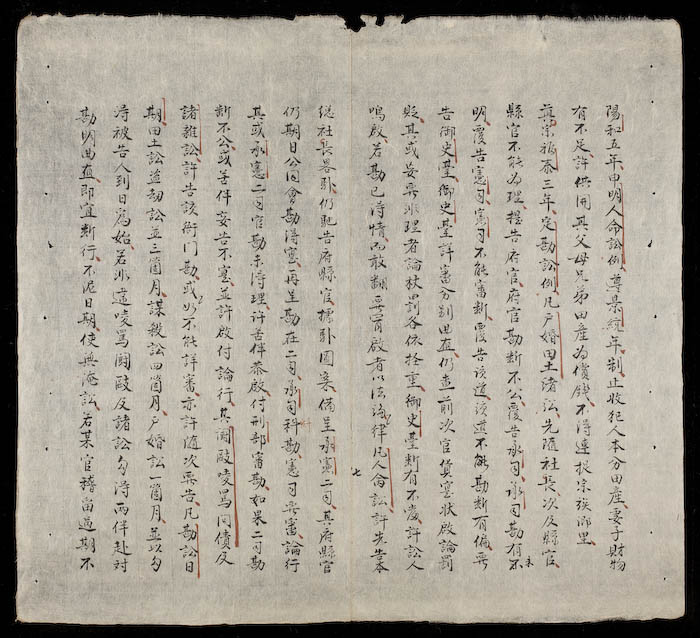 陽和五年申明人命訟例尊景統年制止收犯人本分田産妻子財物
有不足許供開其父母兄弟田産為償錢不得連捉宗族鄉里
真宗福泰三年定勘訟例凡戶婚田土諸訟先隨社長次及縣官
縣官不能為理捉告府官府官勘斷不公覆告承司承司勘有不未
明覆告憲司憲司不能審斷覆告該道該道不能勘斷有偏再
告御史臺御史臺詳審分別曲直仍查前次官員寔狀啟論罰
貶其或妄非理者論杖罰各依輕重御史臺斷有不處許訟人
鳴啟若勘已得情而敢翻要冐啟者以法論律凡人命訟許先告本
總社長畧卧仍馳告府縣官據卧圖案備呈承憲二司其府縣官
仍期日公同會勘得寔再呈勘在二司承司科勘憲司再審論行
其或承憲二司官勘未得理許苦伴恭啟付刑部審勘如果二司勘
斷不公或等伴妄告不寔並許啟付論行其鬪毆凌罵同債及
諸雜訟許告該衙門勘或如不能詳審亦許随次奏告凡勘訟日
期田土訟盗劫訟並三箇月謀殺訟四箇月戶婚訟一箇月並以勾
得被告人到日為始若非道凌罵鬪毆及諸訟勾得兩伴赴對
勘明曲直即宜斷行不泥日期使無淹訟若某官稽留過期不